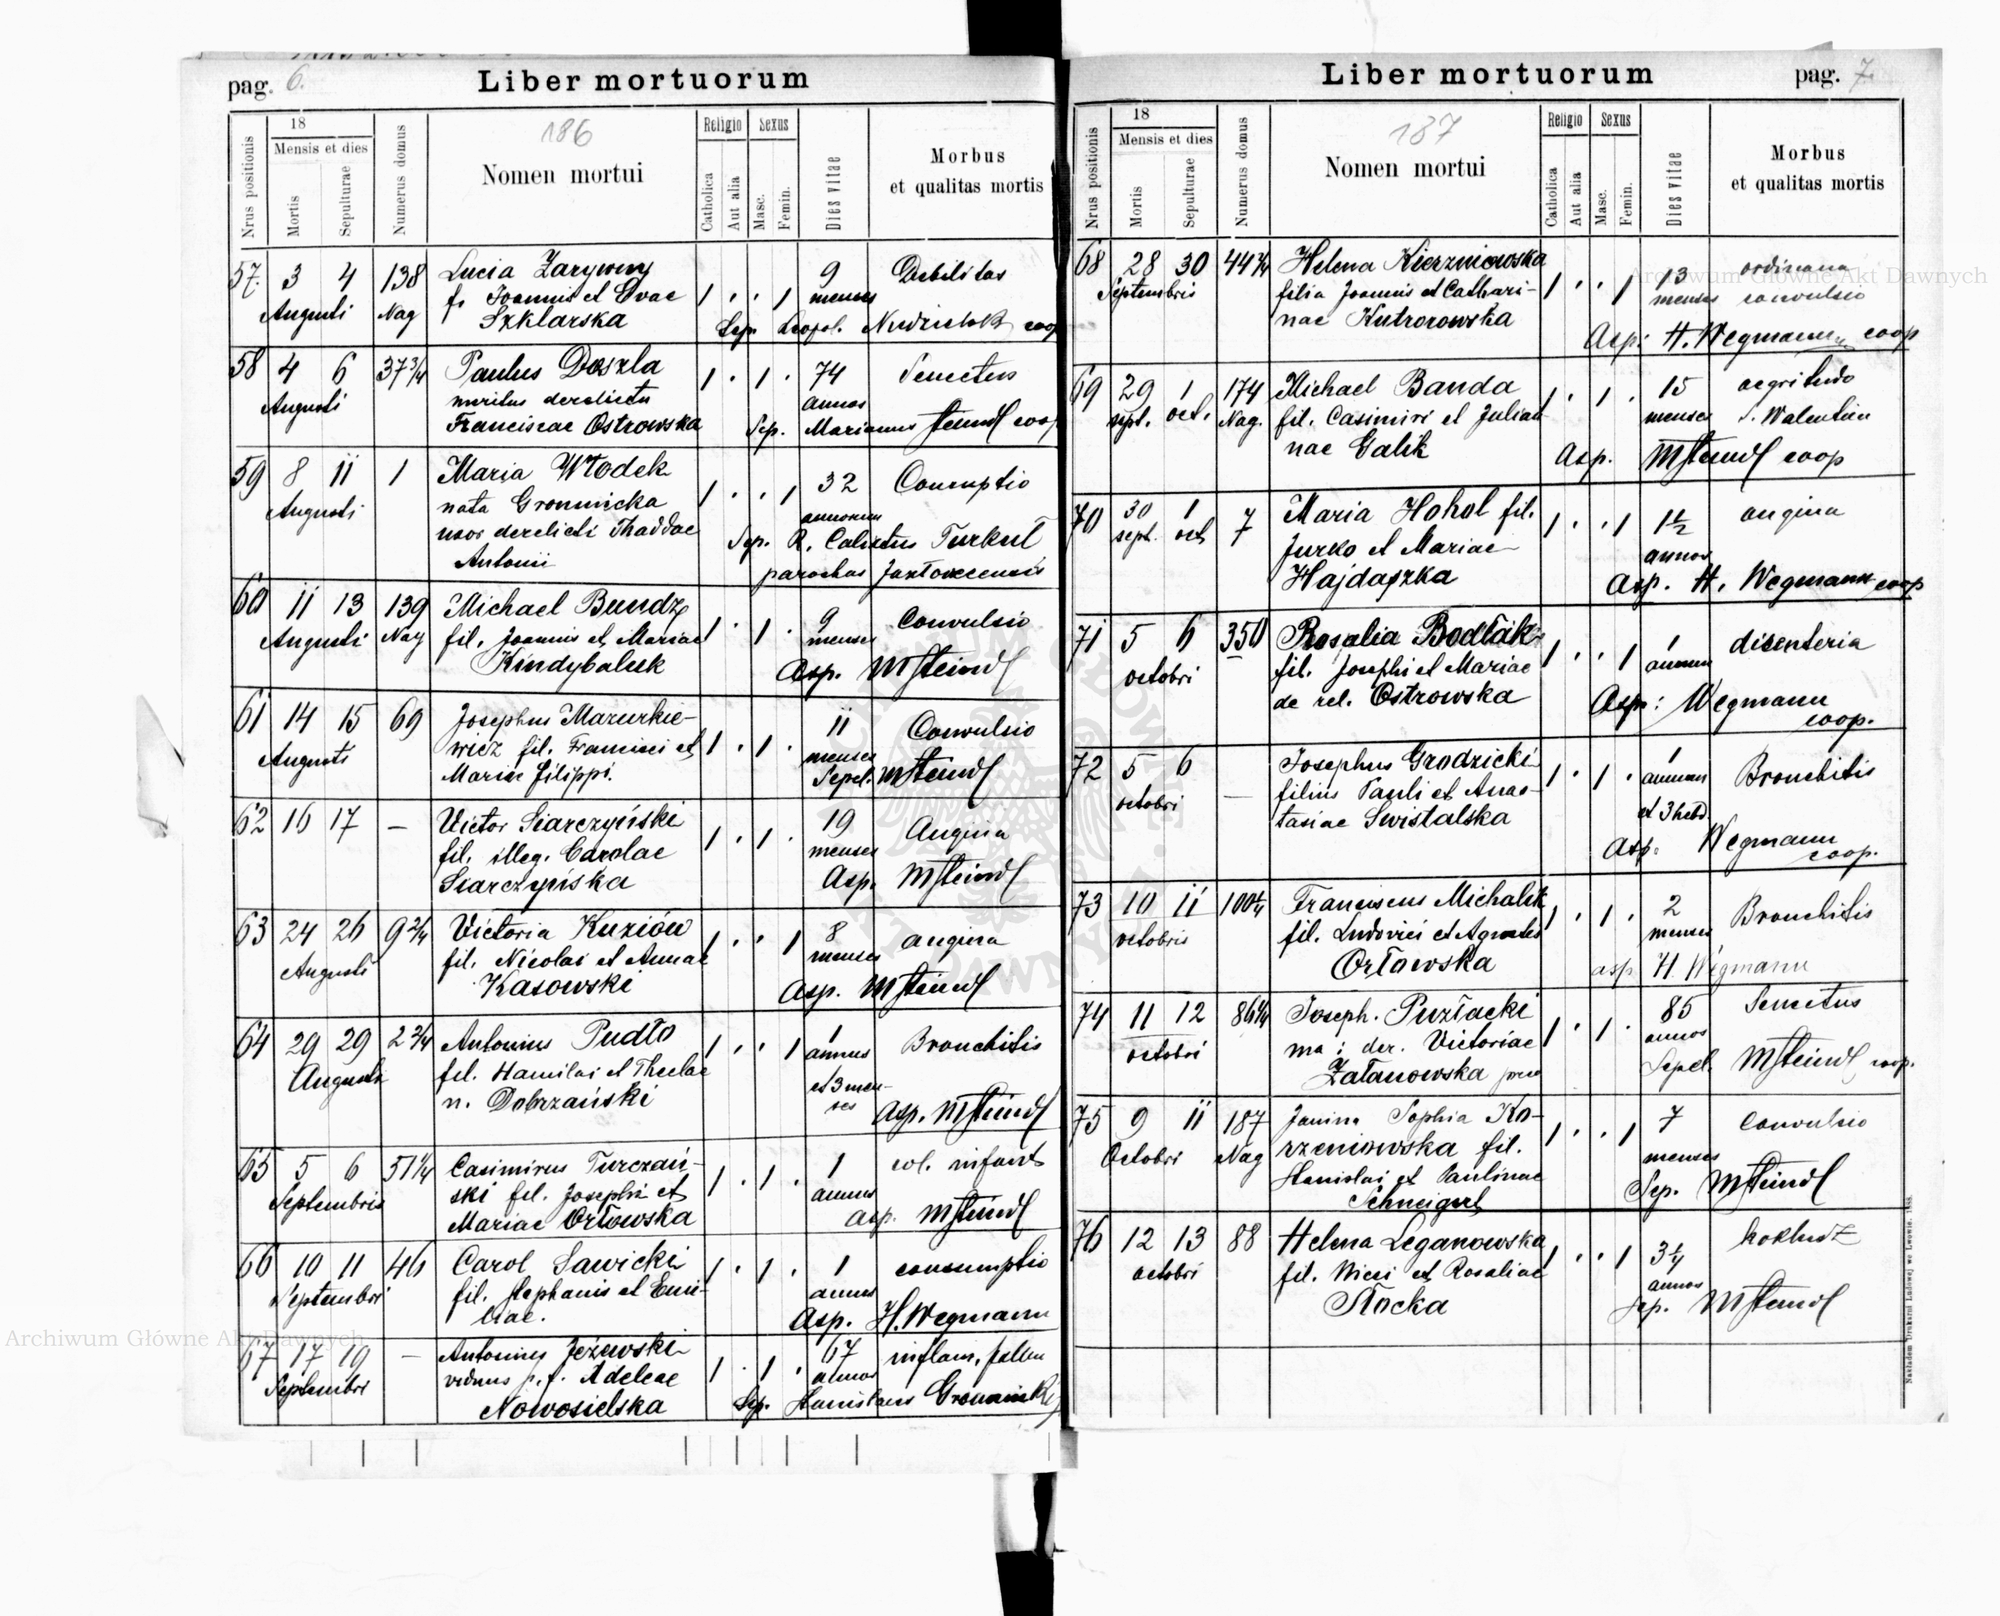 pag. 6.
Liber mortuorum
Nrus positionis
18
Mensis et dies
Mortis
Sepulturae
Numerus domus
186
Nomen mortui
Religio
Catholica
Aut alia
Sexus
Masc.
Femin.
Dies vitae
Morbus
et qualitas mortis
57. 3 4 138 Lucia Zarywny 9 Debilitas
Augusti Nag f. Joannis et Evae menses
Szklarska Sep. Leopol. coop
58 4 6 37 3/4 Paulus Doszla 74 Senectus
Augusti maritus derelictu annos
Franciscae Ostrowska Sep. Marianus Steindl coop
59 8 11 1 Maria Włodek 32 Consuptio
Augusti nata Gromnicka annorum
uxor derelicti Thaddae Sep. R. Calixtus Turkuł
Antonii parochus
60 11 13 139 Michael Bundz 9 Convulsio
Augusti Nag fil. Joannis et Mariae menses
Kindybaluk Asp. MSteindl
61 14 15 69 Josephus Mazurkie- 11 Convulsio
Augusti wicz fil. Francisci et menses
Mariae Filippi. Sepel. MSteindl
62 16 17 — Victor Siarczyński 19 Angina
fil. illeg. Carolae menses
Siarczyńska Asp. MSteindl
63 24 26 9 2/4 Victoria Kuziów 8 angina
Augusti fil. Nicolai et Annae menses
Kasowski Asp. MSteindl
64 29 29 2 3/4 Antonius Pudło 1 Bronchitis
Augusti fil. Stanislai et Theclae annus
n. Dobrzański et 3 men-
ses Asp. MSteindl
65 5 6 51 1/4 Casimirus Turczań- 1 col. infant
Septembris ski fil. Josephi et annus
Mariae Orłowska asp. MSteindl
66 10 11 46 Carol Sawicki 1 consumptio
Septembri fil. Stephanis et Emi- annus
liae. Asp. H. Wegmann
67 17 19 — Antonius Jeżewski 67 inflam.
Septembri viduus p. f. Adeleae annos
Nowosielska Sep. Stanislaus
pag. 7.
Liber mortuorum
Nrus positionis
18
Mensis et dies
Mortis
Sepulturae
Numerus domus
187
Nomen mortui
Religio
Catholica
Aut alia
Sexus
Masc.
Femin.
Dies vitae
Morbus
et qualitas mortis
68 28 30 44 3/4 Helena Kierzniowska 13 ordinaria
Septembris filia Joannis et Cathari- menses convulsio
nae Kutrorowska Asp: H. Wegmann coop
69 29 1 174 Michael Banda 15 aegritudo
sept. oct. Nag. fil. Casimiri et Julian menses s. Walentini
nae Galik Asp. MSteindl coop
70 30 1 7 Maria Hohol fil. 1 1/2 angina
sept. oct Jurko et Mariae annos
Hajdaszka Asp. H. Wegmann coop
71 5 6 350 Rosalia Bodlak 1 disenteria
octobri fil. Josephi et Mariae annum
de rel. Ostrowska Asp: Wegmann
coop.
72 5 6 — Josephus Grodzicki 1 Bronchitis
octobri filius Pauli et Anas- annum
tasiae Swistalska et 3 hebd.
Asp: Wegmann
coop.
73 10 11 100 1/4 Franciscus Michalik 2 Bronchitis
octobris fil. Ludovici et Agnetis menses
Orłowska asp H. Wegmann
74 11 12 86 1/4 Joseph. Puzłacki 85 Senectus
octobri ma: der. Victoriae annos
Załanowska Sepel. MSteindl coop.
75 9 11 187 Janina Sophia Ko- 7 Convulsio
Octobri Nag rzeniowska fil. menses
Stanislai et Paulinae Sep. MSteindl
Schneigert
76 12 13 88 Helena Leganowska 3 1/4 kokludz
octobri fil. Nicei et Rosaliae annos
Stocka Sep. MSteindl
Nakładem Drukarni Ludowej we Lwowie. 1888.
Archiwum Główne Akt Dawnych
Archiwum Główne Akt Dawnych
ARCHIWUM GŁÓWNE AKT DAWNYCH